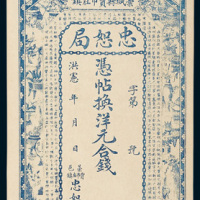 忠恕局
字第　號
憑帖換洋元合錢
洪憲　年　月　日
忠恕